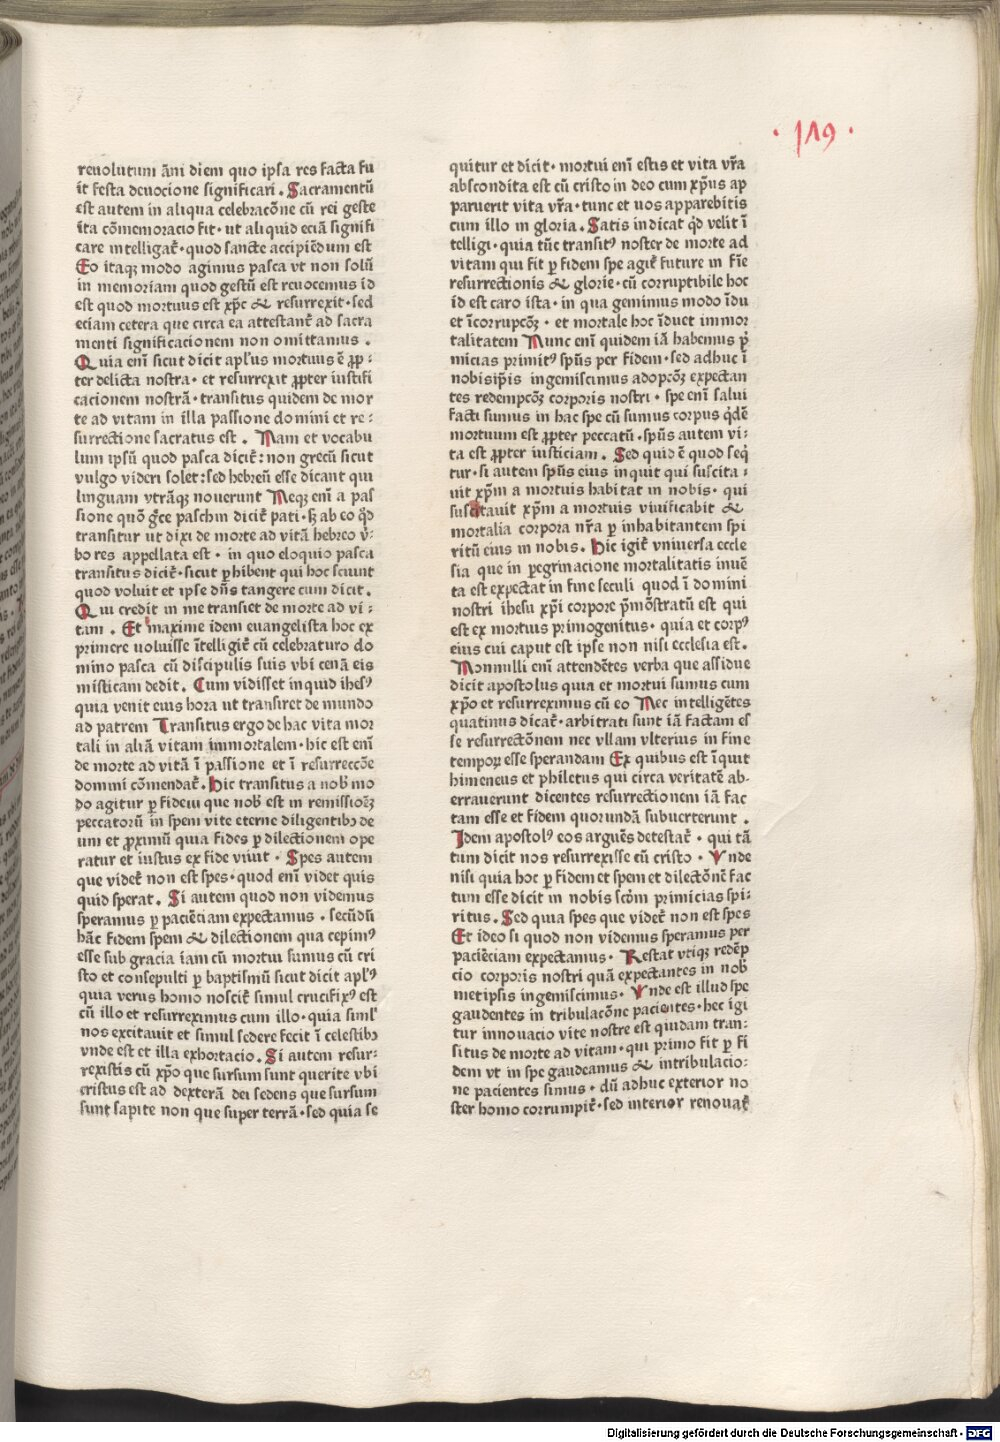 · 119 ·
reuolutum āni diem quo ipsa res facta fu
it festa deuocione significari . Sacramentū
est autem in aliqua celebracōne cū rei geste
ita cōmemoracio fit · ut aliquid eciā signifi
care intelligat᷑ · quod sancte accipiēdum est
Eo itaqꝫ modo agimus pasca vt non solū
in memoriam quod gestū est reuocemus id
est quod mortuus est xp̄c & resurrexit · sed
eciam cetera que circa ea attestant᷑ ad sacra
menti significacionem non omittamus .
Quia eni sicut dicit apl'us mortuus ē ꝓp⸗
ter delicta nostra · et resurrexit ꝓpter iustifi
cacionem nostrā · transitus quidem de mor
te ad vitam in illa passione domini et re⸗
surrectione sacratus est . Nam et vocabu
lum ipsū quod pasca dicit᷑ : non grecū sicut
vulgo videri solet : sed hebreū esse dicant qui
linguam vtrāqꝫ nouerunt Neqꝫ enī a pas
sione quō ḡce paschin dicit᷑ pati · sꝫ ab eo qd̄
transitur ut dixi de morte ad vitā hebreo v̄⸗
bo res appellata est · in quo eloquio pasca
transitus dicit᷑ · sicut ꝑhibent qui hoc sciunt
quod voluit et ipse dn̄s tangere cum dicit .
Qui credit in me transiet de morte ad vi⸗
tam . Et maxime idem euangelista hoc ex
primere uoluisse ītelligit᷑ cū celebraturo do
mino pasca cū discipulis suis vbi cenā eis
misticam dedit . Cum vidisset inquid ihesꝰ
quia venit eius hora ut transiret de mundo
ad patrem Transitus ergo de hac vita mor
tali in aliā vitam immortalem · hic est enī
de morte ad vitā ī passione et ī resurreccōe
domini cōmendat᷑ . Hic transitus a nob̄ mo
do agitur ꝑ fidem que nob̄ est in remissioēꝫ
peccatorū in spem vite eterne diligentibꝫ de
um et ꝓximū quia fides ꝑ dilectionem ope
ratur et iustus ex fide viuit · Spes autem
que videt᷑ non est spes · quod enī videt quis
quid sperat . Si autem quod non videmus
speramus ꝑ paciēciam expectamus . secūdū
hāc fidem spem & dilectionem qua cepimꝰ
esse sub gracia iam cū mortui sumus cū cri
sto et consepulti ꝑ baptismū sicut dicit aplꝰs
quia verus homo noscit᷑ simul crucifixꝰ est
cū illo et resurreximus cum illo · quia siml'
nos excitauit et simul sedere fecit ī celestibꝫ
vnde est et illa exhortacio . Si autem resur⸗
rexistis cū xp̄o que sursum sunt querite vbi
cristus est ad dexterā dei sedens que sursum
sunt sapite non que super terrā · sed quia se
quitur et dicit · mortui enī estis et vita vr̄a
abscondita est cū cristo in deo cum xp̄us ap
paruerit vita vr̄a · tunc et uos apparebitis
cum illo in gloria . Satis indicat qd̄ velit ī
telligi · quia tūc transitꝰ noster de morte ad
vitam qui fit ꝑ fidem spe agit᷑ future in fīe
resurrectionis & glorie · cū corruptibile hoc
id est caro ista · in qua gemimus modo īdu
et īcorrupcōꝫ · et mortale hoc īduet immor
talitatem Nunc enī quidem iā habemus p̄
micias primitꝰ spūs per fidem · sed adhuc ī
nobisip̄is ingemiscimus adopcōꝫ expectan
tes redempcōꝫ corporis nostri · spe enī salui
facti sumus in hac spe cū sumus corpus qd̄ē
mortuum est ꝓpter peccatū · spūs autem vi⸗
ta est ꝓpter iusticiam . Sed quid ē quod seq̄
tur · si autem spūs eius inquit qui suscita⸗
uit xp̄m a mortuis habitat in nobis · qui
suscitauit xp̄m a mortuis viuificabit &
mortalia corpora nr̄a ꝑ inhabitantem spi
ritū eius in nobis . Hic igit᷑ vniuersa eccle
sia que in ꝑegrinacione mortalitatis inuē
ta est expectat in fine seculi quod ī domini
nostri ihesu xp̄i corpore p̄mōstratū est qui
est ex mortuis primogenitus · quia et corpꝰ
eius cui caput est ipse non nisi ecclesia est .
Nonnulli enī attendētes verba que assidue
dicit apostolus quia et mortui sumus cum
xp̄o et resurreximus cū eo Nec intelligētes
quatinus dicat᷑ · arbitrati sunt iā factam es
se resurrectōnem nec vllam vlterius in fine
temporꝝ esse sperandam Ex quibus est īquit
himeneus et philetus qui circa veritatē ab⸗
errauerunt dicentes resurrectionem iā fac
tam esse et fidem quorundā subuerterunt .
Idem apostolꝰ eos arguēs detestat᷑ · qui tā
tum dicit nos resurrexisse cū cristo · Vnde
nisi quia hoc ꝑ fidem et spem et dilectōnē fac
tum esse dicit in nobis scd̄m primicias spi⸗
ritus . Sed quia spes que videt᷑ non est spes
Et ideo si quod non videmus speramus per
paciēciam expectamus · Restat vtiqꝫ redēp
cio corporis nostri quā expectantes in nob̄
metipsis ingemiscimus · Vnde est illud spe
gaudentes in tribulacōne pacientes · hec igi
tur innouacio vite nostre est quidam tran⸗
situs de morte ad vitam · qui primo fit ꝑ fi
dem vt in spe gaudeamus & intribulacio⸗
ne pacientes simus · dū adhuc exterior no
ster homo corrumpit᷑ · sed interior renouat᷑
Digitalisierung gefördert durch die Deutsche Forschungsgemeinschaft - DFG